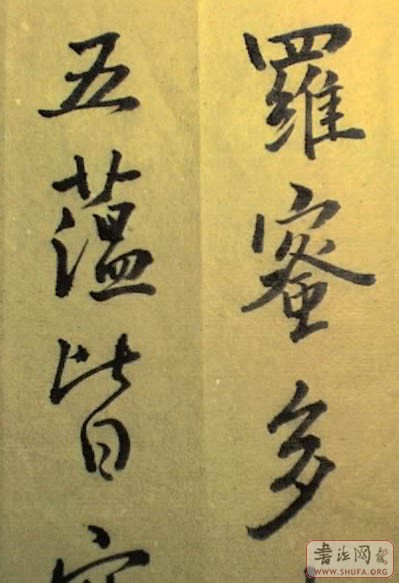 羅蜜多
五蘊皆
書法网
WWW.SHUFA.ORG